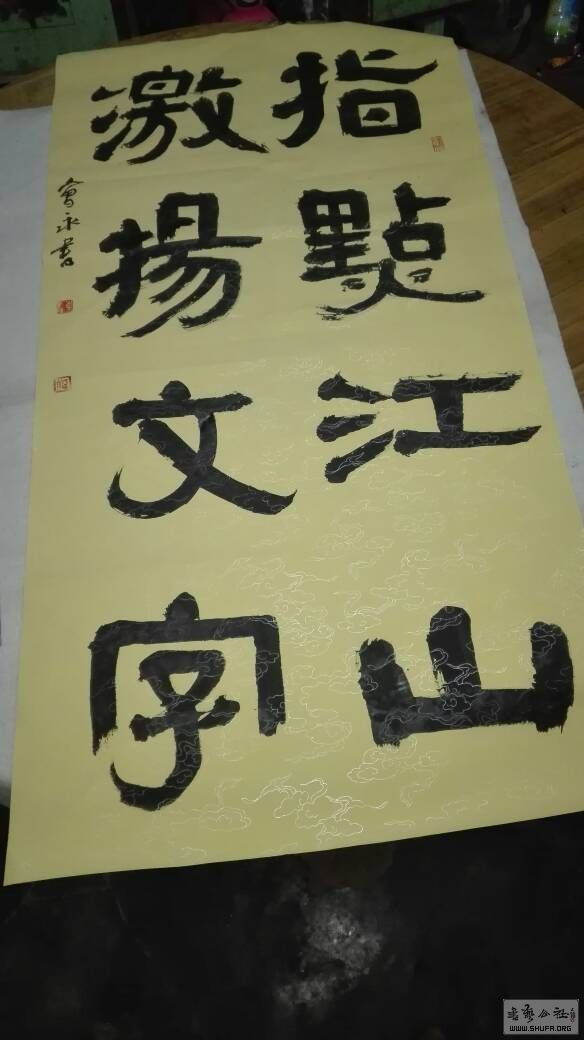 指點江山
激揚文字
會永書
书艺公社
WWW.SHUFA.ORG